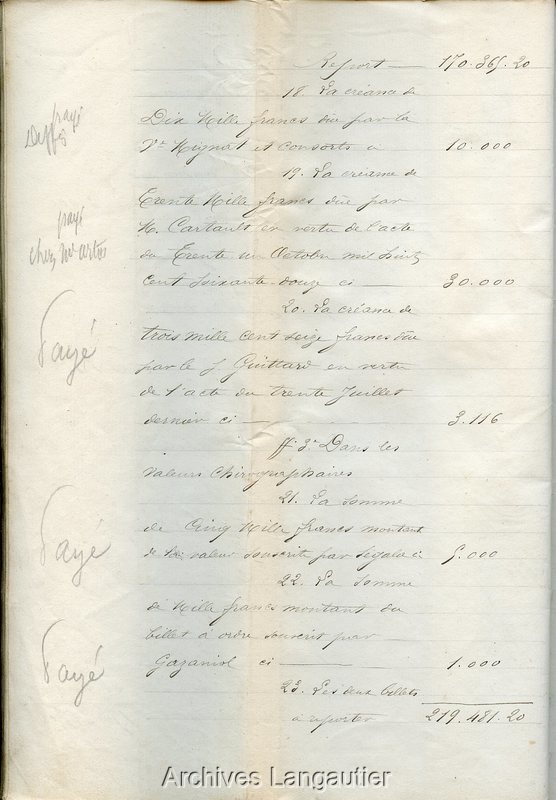 Report — 170.365.20
18. La créance de
Dix Mille francs due par la
Vve Mignat et consorts ci 10.000
payé
19. La créance de
Trente Mille francs due par
M. Cartault en vertu de l'acte
payé
chez Me
du Trente un Octobre mil huit
cent soixante-douze ci — 30.000
20. La créance de
trois mille cent seize francs due
Payé
par le S. Guittard en vertu
de l'acte du trente Juillet
dernier ci — 3.116
ff 3e Dans les
valeurs chirographaires
21. La somme
de Cinq Mille francs montant
Payé
de la valeur souscrite par Ségala ci 5.000
22. La somme
de Mille francs montant du
billet à ordre souscrit par
Payé
Gazaniol ci — 1.000
23. Les deux billets
à reporter 219.481.20
Archives Langautier